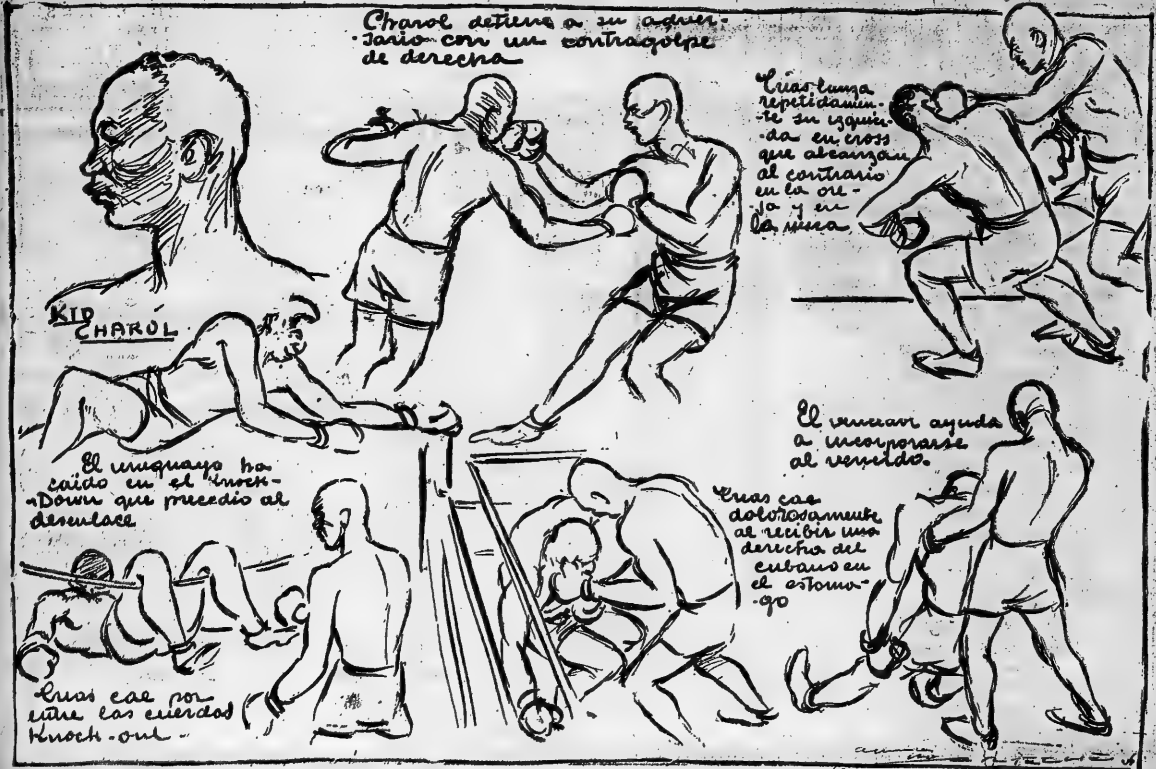 Charol detiene a su adver-
sario con un contragolpe
de derecha
Crias lanza
repetidamen-
te su izquier-
da en cross
que alcanzan
al contrario
en la ore-
ja y en
la nuca
KID
CHAROL
El uruguayo ha
caido en el knock-
Down que precedio al
desenlace
El vencedor ayuda
a incorporarse
al vencido.
Crias cae
dolorosamente
al recibir una
derecha del
cubano en
el estoma-
go
Crias cae por
entre las cuerdas
Knock-out-